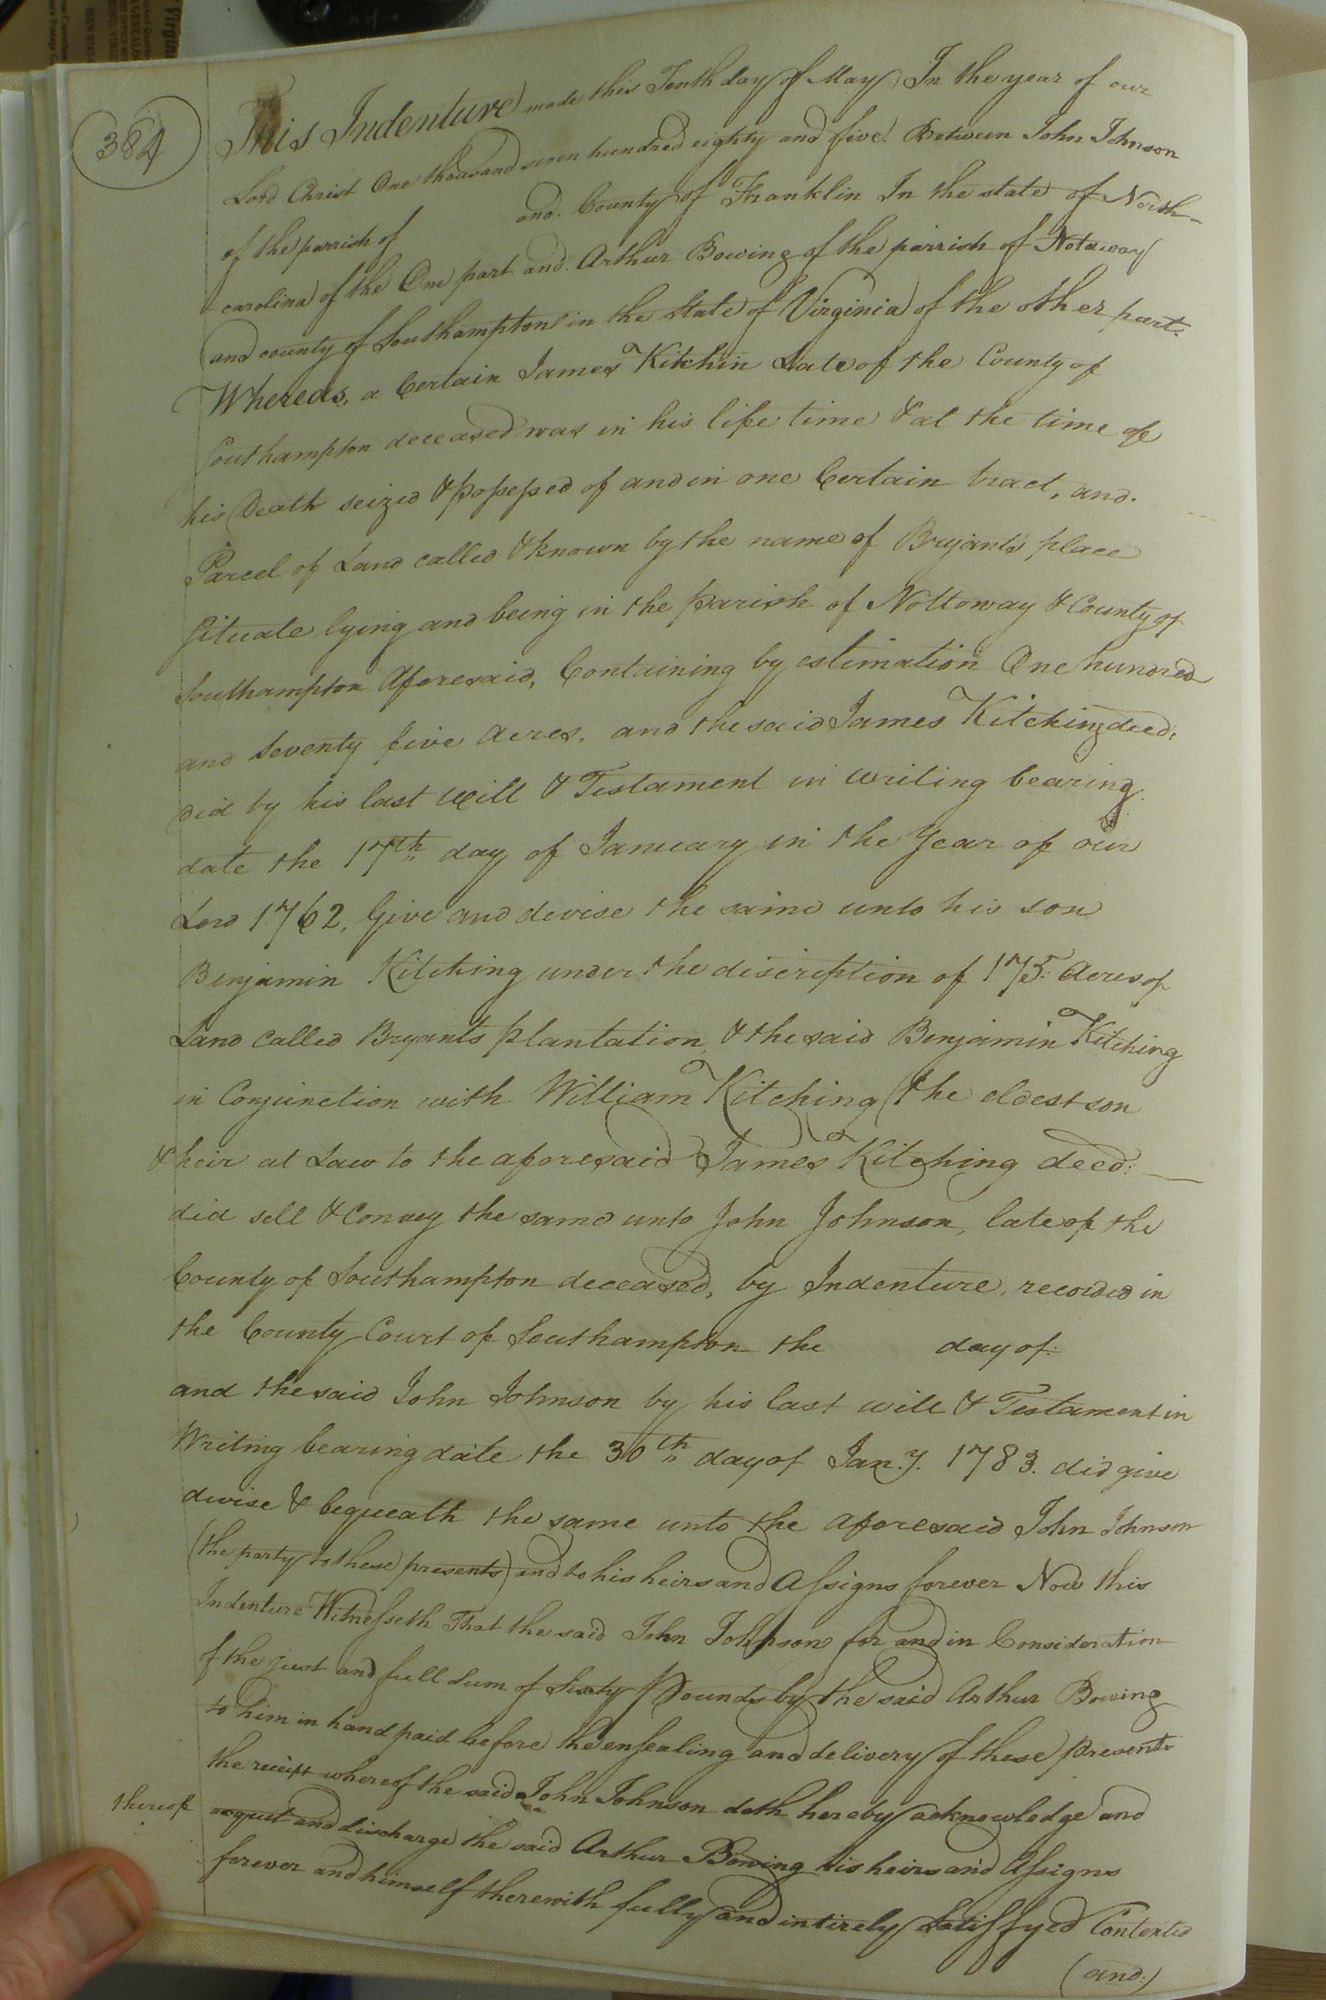 384
This Indenture made this Tenth day of May In the year of our
Lord Christ One thousand seven hundred eighty and five. Between John Johnson
of the parrish of and County of Franklin In the state of North-
carolina of the One part and Arthur Bowing of the parrish of Notoway
and county of Southampton in the State of Virginia of the other part.
Whereas, a Certain James Kitchin Late of the County of
Southampton deceased was in his life time & at the time of
his Death seized & possessed of and in one Certain tract, and.
Parcel of Land called & known by the name of Bryant's place
Situate lying and being in the parish of Nottoway & County of
Southampton Aforesaid, Containing by estimation One hundred
and Seventy five Acres, and the said James Kitching deed,
did by his last Will & Testament in writing bearing
date the 17th day of January in the Year of our
Lord 1762, Give and devise the same unto his son
Benjamin Kitching under the discreption of 175 Acres of
Land Called Bryants plantation, & the said Benjamin Kitching
in Conjunction with William Kitching (the eldest son
& heir at Law to the aforesaid James Kitching deed:
did sell & Convey the same unto John Johnson, late of the
County of Southampton deceased, by Indenture, recorded in
the County Court of Southampton the day of
and the said John Johnson by his last will & Testament in
Writing bearing date the 30th day of Jan.y. 1783. did give
devise & bequeath the same unto the aforesaid John Johnson
(the party to these presents) and to his heirs and Assigns forever Now this
Indenture Witnesseth That the said John Johnson for and in Consideration
of the just and full Sum of Sixty Pounds by the said Arthur Bowing
to him in hand paid before the ensealing and delivery of these presents
the receipt whereof the said John Johnson doth hereby acknowledge and
thereof acquit and discharge the said Arthur Bowing his heirs and Assigns
forever and himself therewith fully and intirely Satisfyed Contented
(and)